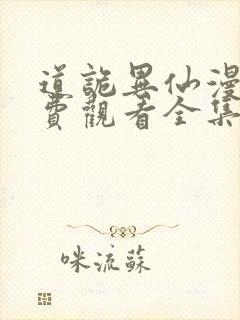 道詭異仙漫
費觀看全集
咪流蘇